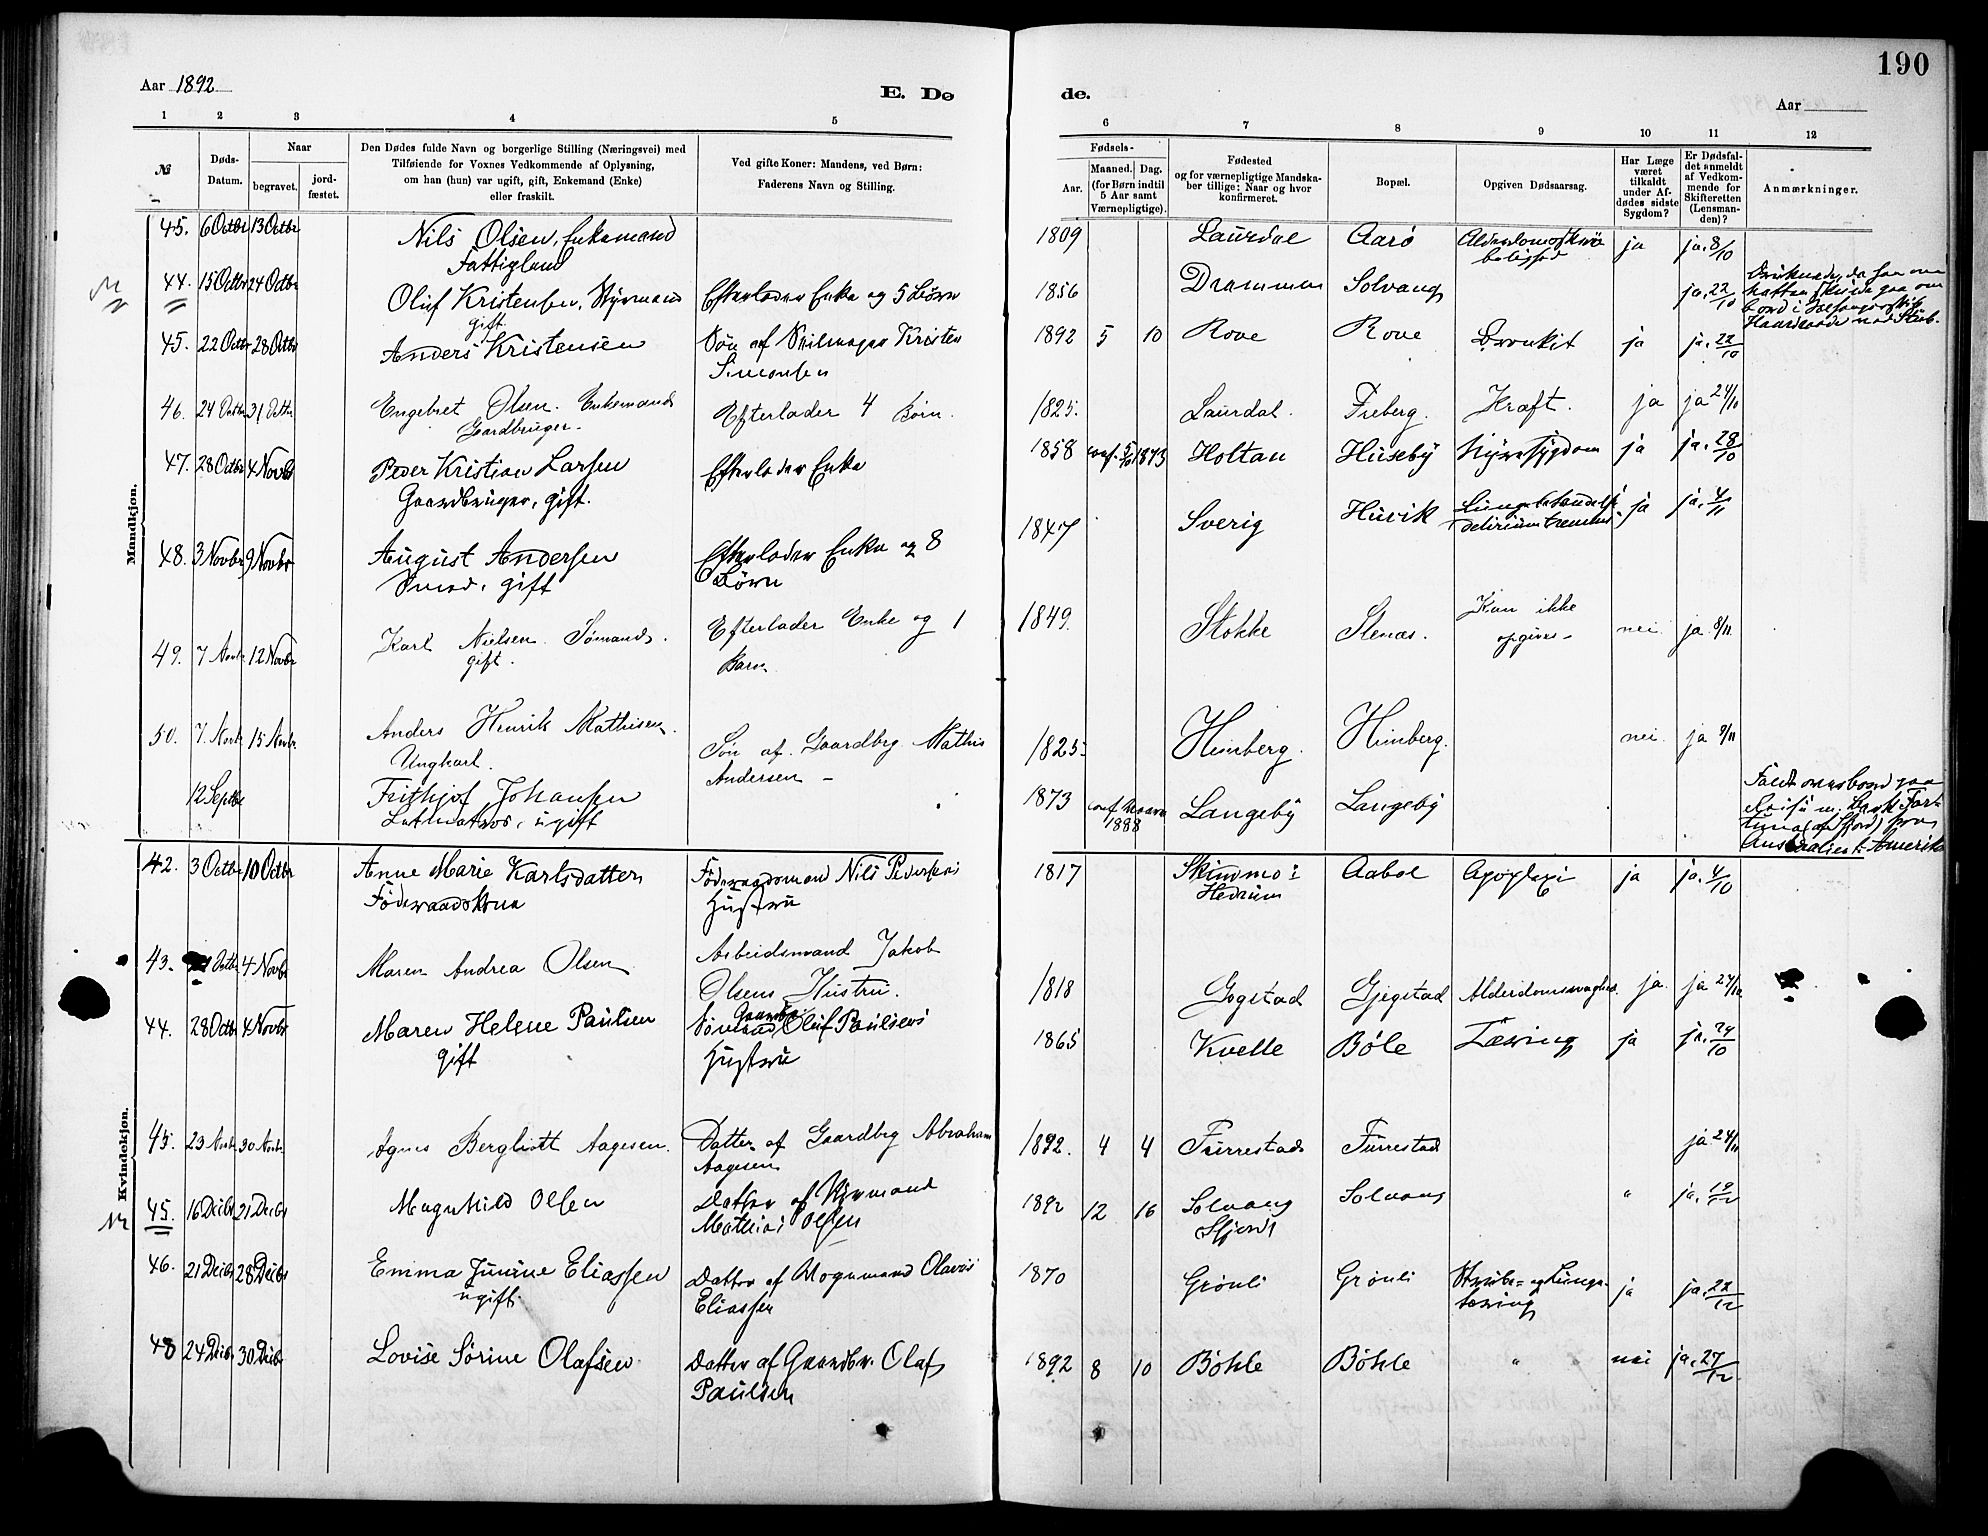 190
Aar 1892
E. Dø
de.
Aar
1 2 3 4 5
6 7 8 9 10 11 12
№
Døds-
Datum.
Naar
begravet.
jord-
fæstet.
Den Dødes fulde Navn og borgerlige Stilling (Næringsvei) med
Tilføiende for Voxnes Vedkommende af Oplysning,
om han (hun) var ugift, gift, Enkemand (Enke)
eller fraskilt.
Ved gifte Koner: Mandens, ved Børn:
Faderens Navn og Stilling.
Fødsels-
Aar.
Maaned. Dag.
(for Børn indtil
5 Aar samt
Værnepligtige).
Fødested
og for værnepligtige Mandska-
ber tillige: Naar og hvor
konfirmeret.
Bopæl.
Opgiven Dødsaarsag.
Har Læge
været
tilkaldt
under Af-
dødes sidste
Sygdom?
Er Dødsfal-
det anmeldt
af Vedkom-
mende for
Skifteretten
(Lensman-
den)?
Anmærkninger.
Mandkjøn.
45. 6 Octbr 13 Octbr Nils Olsen, Enkemand 1809 Laurdal Aarø ja ja. 8/10
Fattiglem
44. 15 Octbr 24 Octbr Oluf Kristensen, Styrmand Efterlader Enke og 5 Børn 1856 Drammen Solvang ja. 22/10
gift
45. 22 Octbr 28 Octbr Anders Kristensen Søn af Kristen 1892 5 10 Rove Rove Bronkit ja ja. 22/10
Simonsen
46. 24 Octbr 31 Octbr Engebret Olsen. Enkemand Efterlader 4 Børn. 1825. Laurdal. Freberg. Kræft. ja ja 24/10
Gaardbruger.
47. 28 Octbr 4 Novbr Peder Kristian Larsen Efterlader Enke 1858 conf. 5/10 1873 Holtan Huseby Nyresygdom ja ja. 28/10
Gaardbruger, gift.
48. 3 Novbr 9 Novbr August Andersen Efterlader Enke og 8 1847 Sverig Huvik delirium tremens ja ja. 4/11
Smed, gift Børn
49. 7 Novbr 12 Novbr Karl Nielsen Sømand. Efterlader Enke og 1 1849. Stokke Stenas. Kan ikke nei ja 8/11
gift. Barn. opgives
50. 7 Novbr 15 Novbr Anders Henrik Mathisen. Søn af Gaardbrg Mathis 1825. Himberg. Himberg. nei. ja 9/11
Ungkarl. Andersen
12 Septbr Frithjof Johansen 1873 conf. 1888 Langeby Langeby
Letmatros, ugift
Kvindekjøn.
42. 3 Octbr 10 Octbr Anne Marie Karlsdatter Føderaadsmand Nils Pedersens 1817 Skimmo i Aabol Apoplexi ja ja. 4/10
Føderaadskone Hustru Hedrum
43. Octbr 4 Novbr Maren Andrea Olsen Arbeidsmand Jakob 1818 Gogstad Gjegstad ja. ja 24/10
Olsens Hustru.
44. 28 Octbr 4 Novbr Maren Helene Paulsen Oluf Paulsens 1865 Kvelle Bøle Tæring ja ja. 29/10
gift Hustru
45. 23 Novbr 30 Novbr Agnes Bergliott Aagesen. Datter af Gaardbrg Abraham 1892. 4 4 Furrestad Furrestad ja 24/11
Aagesen
45. 16 Decbr 21 Decbr Magnhild Olsen Datter af Styrmand 1892 12 16 Solvang Solvang " ja. 19/12
Mathias Olsen
46. 21 Decbr 28 Decbr Emma Junine Eliassen Datter af Vognmand Olavus 1870 Grønli Grønli Strube- og Lunge- ja ja. 22/12
ugift. Eliassen tæring
48 24 Decbr 30 Decbr Lovise Sørine Olafsen Datter af Gaardbr. Olaf 1892 8 10 Bøhle Bøhle " nei ja. 27/12
Paulsen